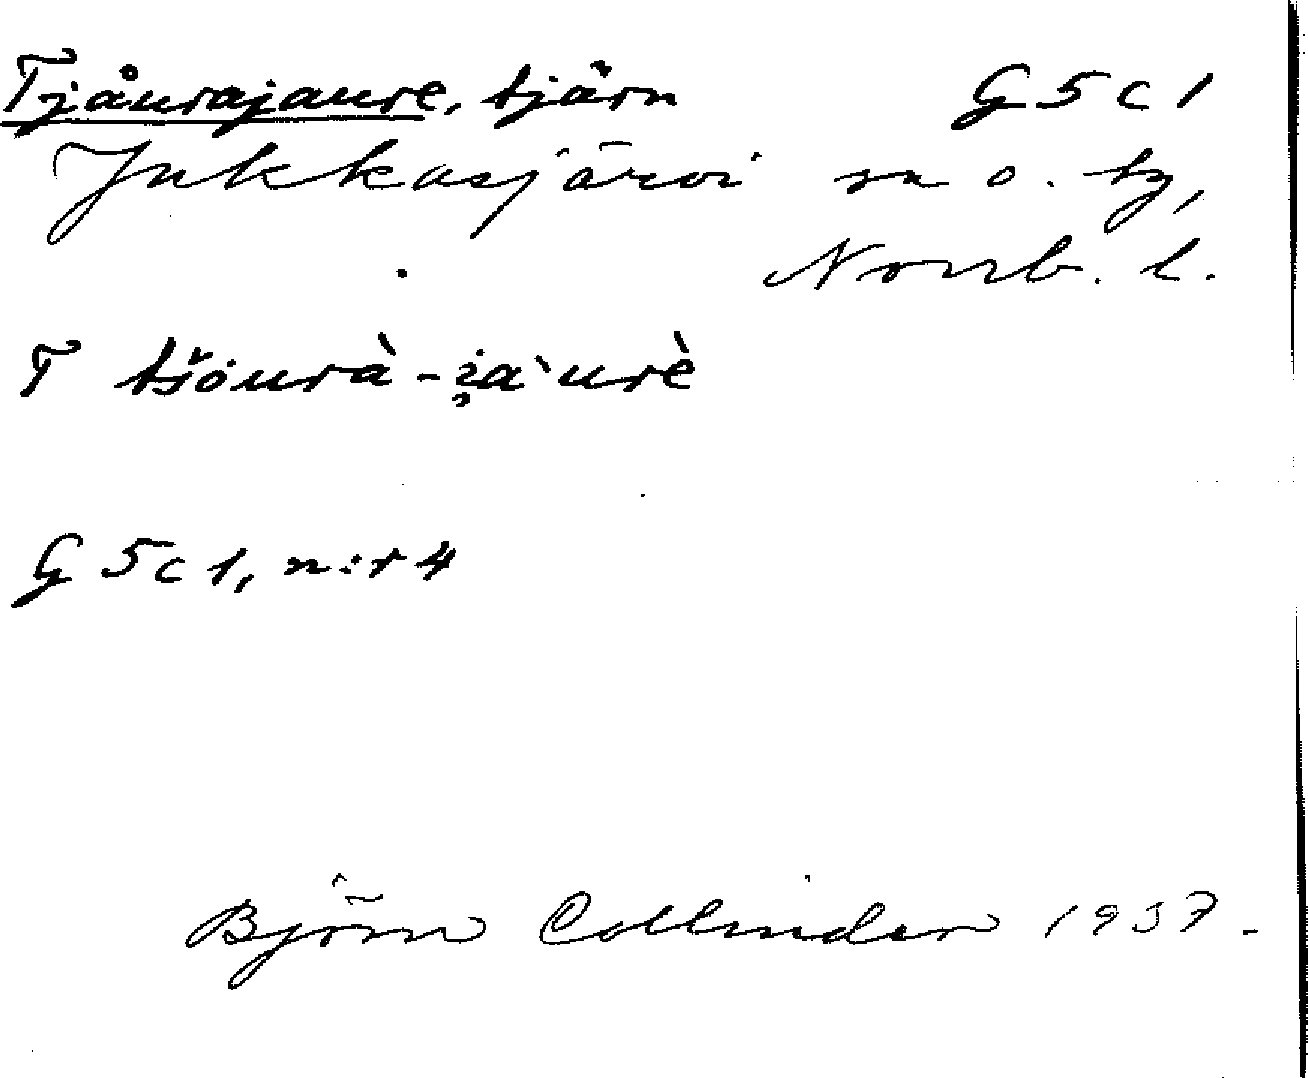 Tjåurajaure, tjärn G5c1
Jukkasjärvi sn o. tg,
Norrb. l.
T tšöurà-i̯a`urè
G 5c 1, n:r 4
Björn Collinder 1937.